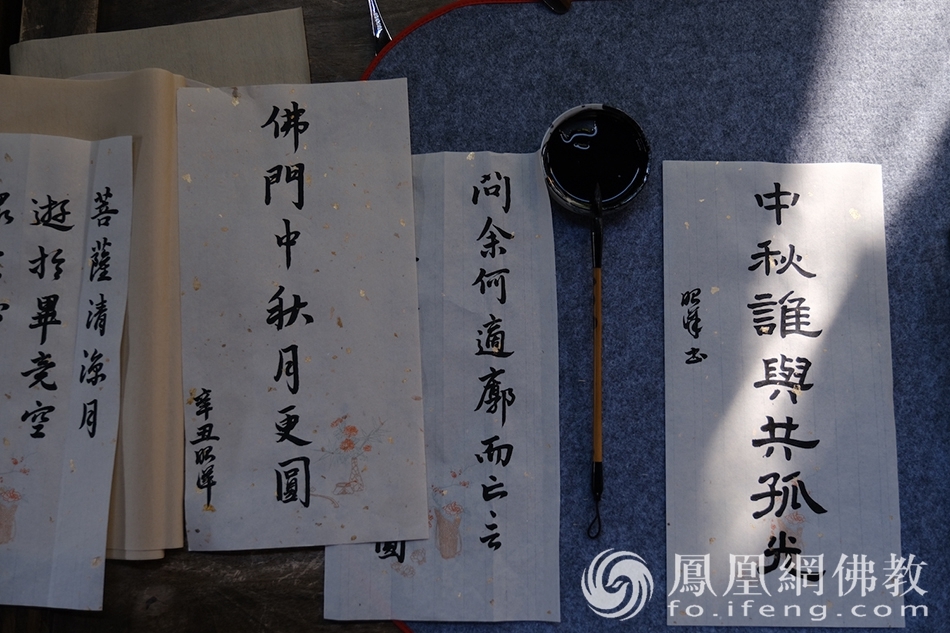 中秋誰與共孤光
昭洋书
問余何適廓而亡言
圓
佛門中秋月更圓
辛丑昭洋
菩薩清涼月
遊於畢竟空
鳳凰網佛教
fo.ifeng.com